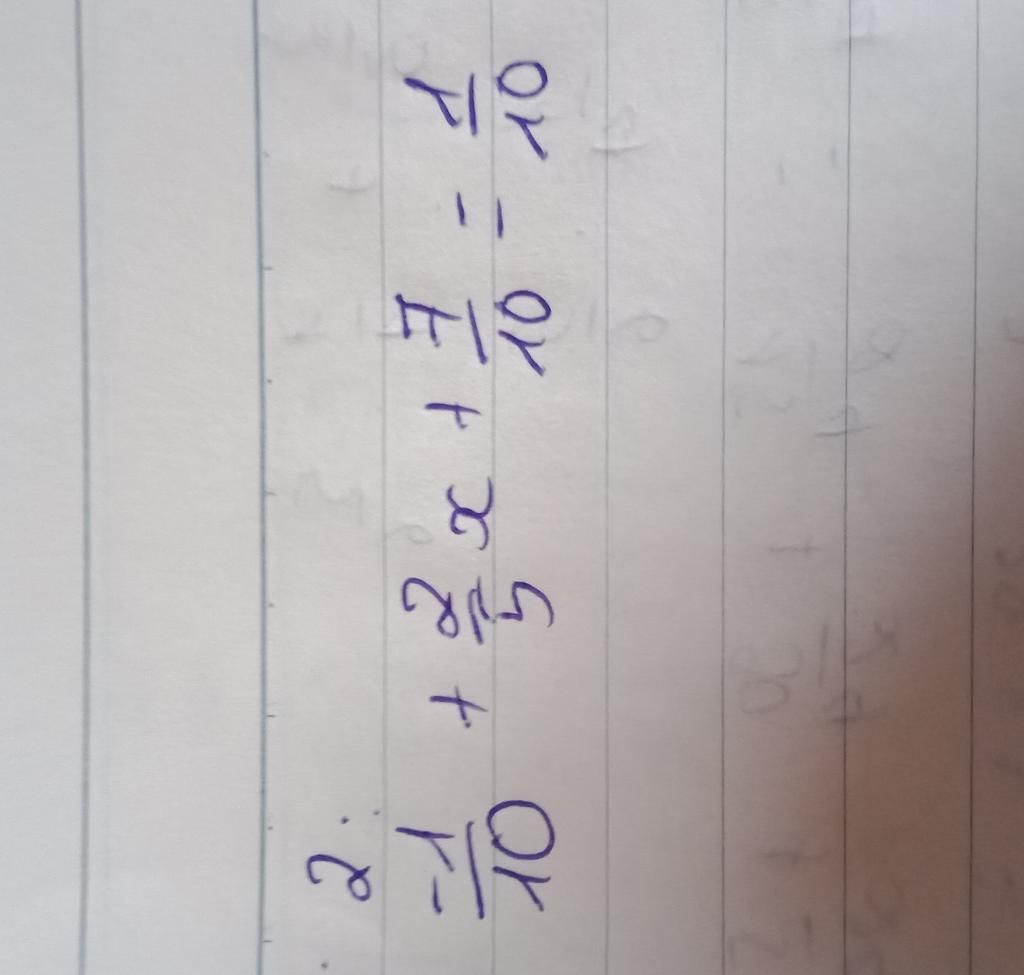 2.
-1/10 + 2/5 x + 7/10 = 1/10